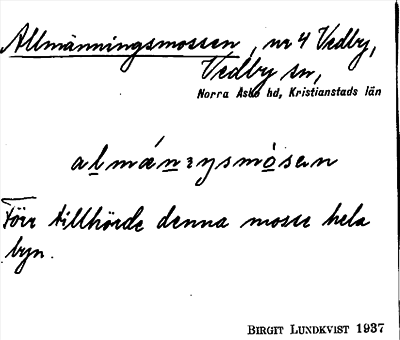 Allmänningsmossen, nr 4 Vedby,
Vedby sn,
Norra Åsbo hd, Kristianstads län
Förr tillhörde denna mosse hela
byn.
BIRGIT LUNDKVIST 1937